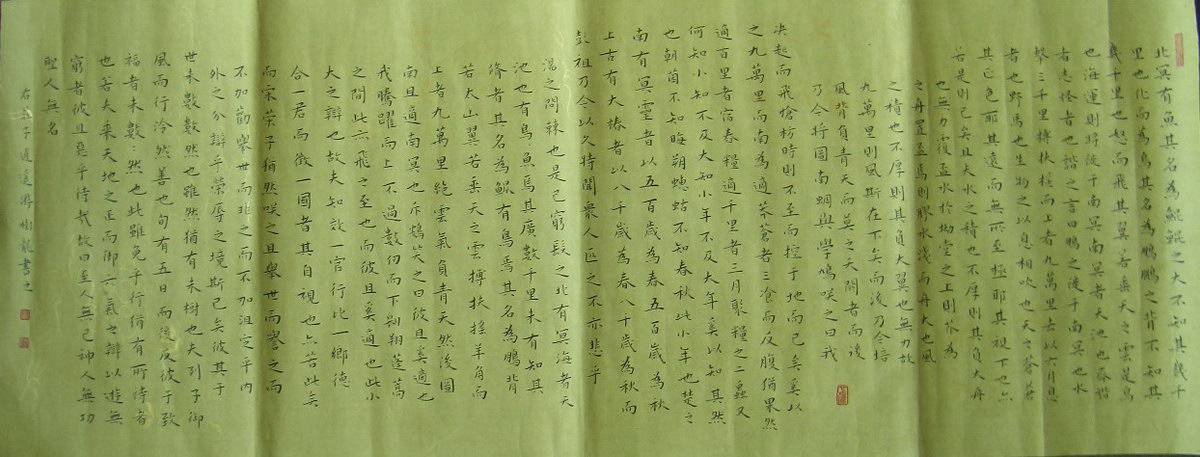 北冥有魚其名為鯤鯤之大不知其幾千
里也化而為鳥其名為鵬鵬之背不知其
幾千里也怒而飛其翼若垂天之雲是鳥
也海運則將徙于南冥南冥者天池也齊諧
者志怪者也諧之言曰鵬之徙于南冥也水
擊三千里摶扶搖而上者九萬里去以六月息
者也野馬也生物之以息相吹也天之蒼蒼
其正色耶其遠而無所至極耶其視下也亦
若是則已矣且夫水之積也不厚則其負大舟
也無力覆盃水於坳堂之上則芥為
之舟置盃焉則膠水淺而舟大也風
之積也不厚則其負大翼也無力故
九萬里則風斯在下矣而後乃今培
風背負青天而莫之夭閼者而後
乃今將圖南蜩與學鳩咲之曰我
决起而飛搶枋時則不至而控于地而已矣奚以
之九萬里而南為適莽蒼者三飡而反腹猶果然
適百里者宿舂糧適千里者三月聚糧之二蟲又
何知小知不及大知小年不及大年奚以知其然
也朝菌不知晦朔蟪蛄不知春秋此小年也楚之
南有冥靈者以五百歲為春五百歲為秋
上古有大椿者以八千歲為春八千歲為秋而
彭祖乃今以久特聞衆人匹之不亦悲乎
湯之問棘也是已窮髮之北有冥海者天
池也有魚焉其廣數千里未有知其
脩者其名為鯤有鳥焉其名為鵬背
若太山翼若垂天之雲摶扶搖羊角而
上者九萬里絕雲氣負青天然後圖
南且適南冥也斥鴳咲之曰彼且奚適也
我騰躍而上不過數仞而下翱翔蓬蒿
之間此亦飛之至也而彼且奚適也此小
大之辯也故夫知效一官行比一鄉德
合一君而徵一國者其自視也亦若此矣
而宋榮子猶然咲之且舉世而譽之而
不加勸舉世而非之而不加沮定乎內
外之分辯乎榮辱之境斯已矣彼其于
世未數數然也雖然猶有未樹也夫列子御
風而行泠然善也旬有五日而後反彼于致
福者未數〻然也此雖免乎行猶有所待者
也若夫乘天地之正而御六氣之辯以遊無
窮者彼且惡乎待哉故曰至人無己神人無功
聖人無名
右莊子逍遙游樹龍書之